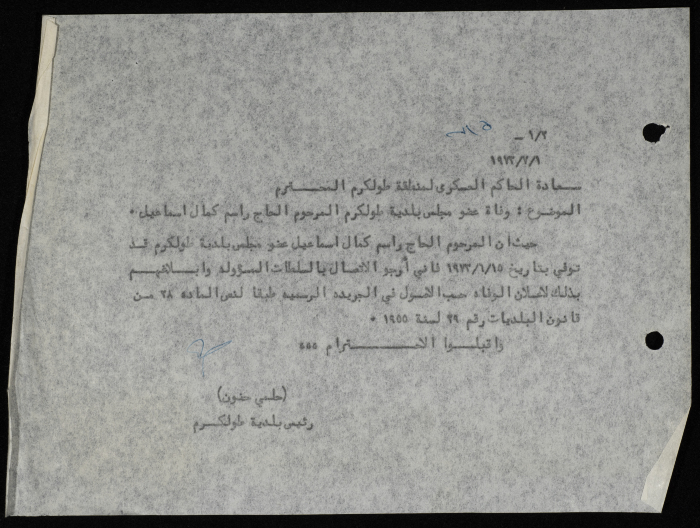 ١/٢ ــ
١٩٧٣/٢/١
سعادة الحاكم العسكرى لمنطقة طولكرم المحترم
الموضوع : وفاة عضو مجلس بلدية طولكرم المرحوم الحاج راسم كمال اسماعيل •
حيث ان المرحوم الحاج راسم كمال اسماعيل عضو مجلس بلدية طولكرم قد
توفي بتاريخ ١٩٧٣/١/١٥ فاني أرجو الاتصال بالسلطات المسؤوله وابلاغهم
بذلك لاعلان الوفاه حسب الاصول في الجريده الرسميه طبقا لنص الماده ٢٨ من
قانون البلديات رقم ٢٩ لسنة ١٩٥٥ •
واقبلوا الاحترام ٥٥٥
(حلمي حنون)
رئيس بلدية طولكرم